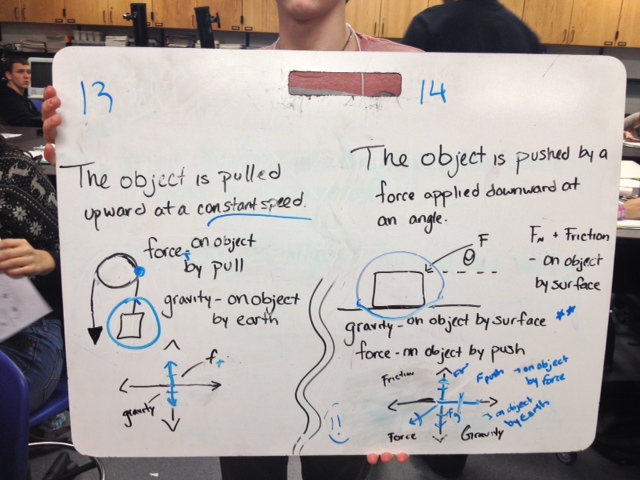 13
The object is pulled
upward at a constant speed.
force - on object
by pull
gravity - on object
by earth
gravity
14
The object is pushed by a
force applied downward at
an angle.
F
θ
FN + Friction
- on object
by surface
gravity - on object by surface **
force - on object by push
Friction
Fpush → on object
by force
→ on object
by earth
Fg
Force
Gravity